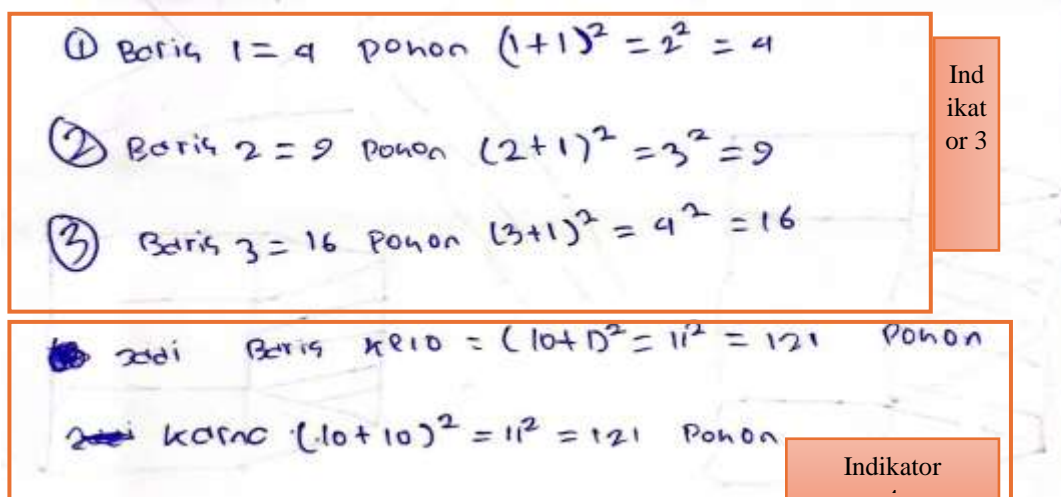 ① Baris 1 = 4 Pohon (1+1)² = 2² = 4
② Baris 2 = 9 Pohon (2+1)² = 3² = 9
③ Baris 3 = 16 Pohon (3+1)² = 4² = 16
Ind
ikat
or 3
Jadi Baris ke 10 = (10+1)² = 11² = 121 Pohon
Karna (10+10)² = 11² = 121 Pohon
Indikator